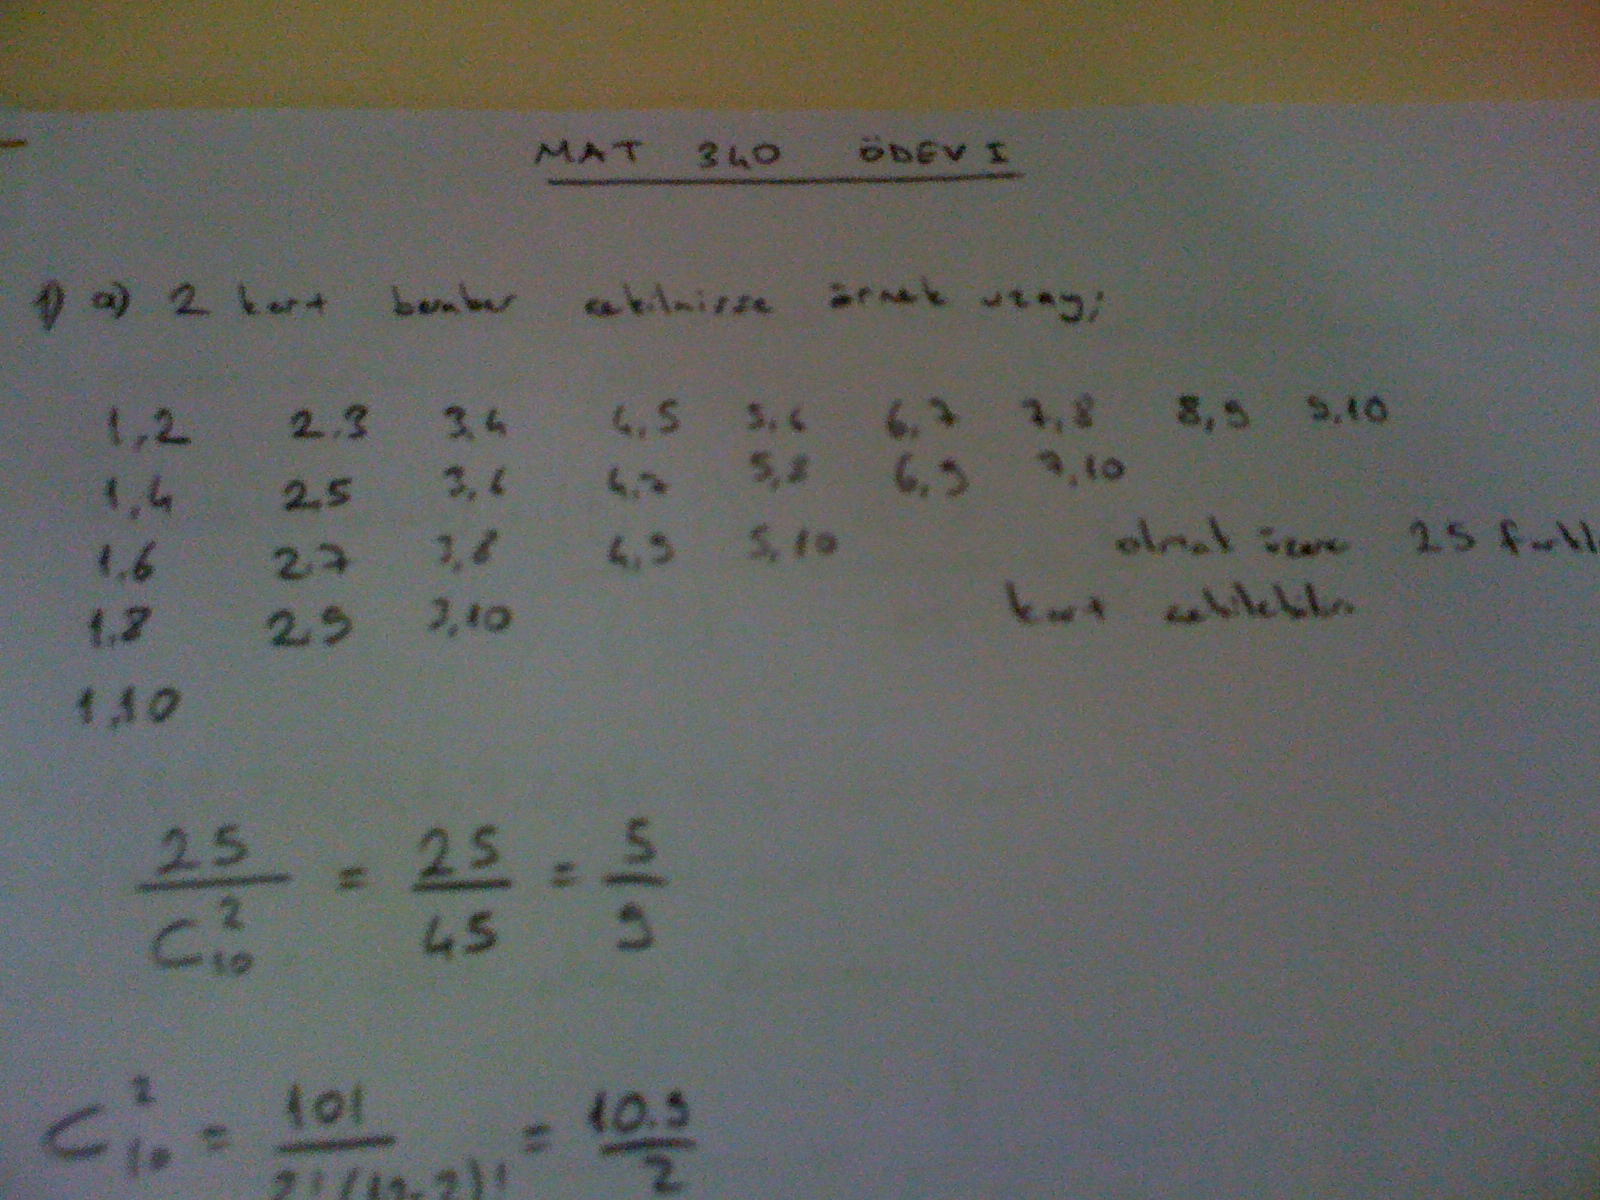 MAT 340 ÖDEV I
1) a) 2 kart beraber çekilmişse örnek uzay;
1,2 2,3 3,4 4,5 5,6 6,7 7,8 8,9 9,10
1,4 2,5 3,6 4,7 5,8 6,9 7,10
1,6 2,7 3,8 4,9 5,10 olmak üzere 25 farklı
1,8 2,9 3,10 kart çekilebilir
1,10
25 / C₁₀² = 25 / 45 = 5 / 9
C₁₀² = 10! / 2!(10-2)! = 10.9 / 2